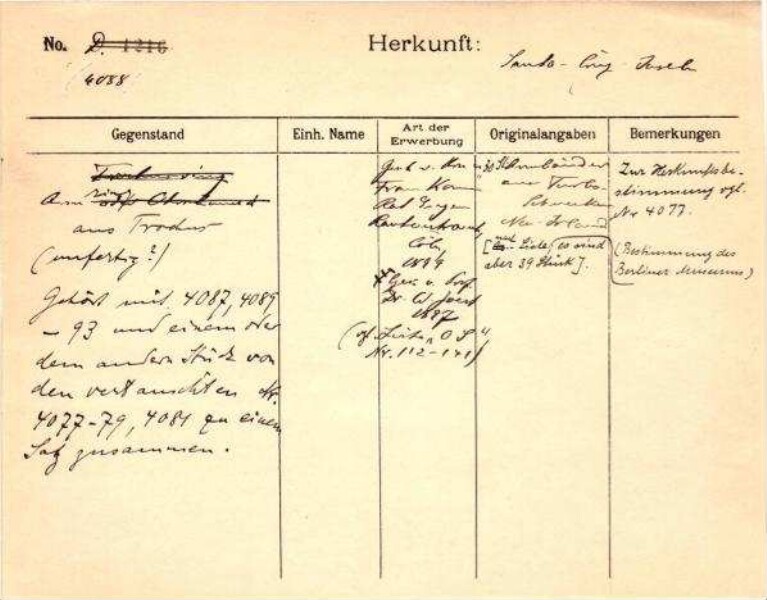 No. D. 1216
4088
Herkunft:
Santa-Cruz-Inseln
Gegenstand
Einh. Name
Art der
Erwerbung
Originalangaben
Bemerkungen
Trochusring
Armring oder Ohrschmuck
aus Trochus
(unfertig?)
Gehört mit 4087, 4089
– 93 und einem oder
dem andern Stück von
den vertauschten Nr.
4077–79, 4081 zu einem
Satz zusammen.
Gesch. v.
Frau
Rautenstrauch,
Cöln,
1899
* Ges. v. Prof.
Dr. W. Joest
1897
(vgl. Liste "O S"
Nr. 112–141)
30 St. Armbänder
aus Turbo-
Schnecken
Neu-Irland
[nach Liste, es sind
aber 39 Stück].
Zur Herkunftsbe-
stimmung vgl.
Nr 4077.
(Bestimmung des
Berliner Museums)